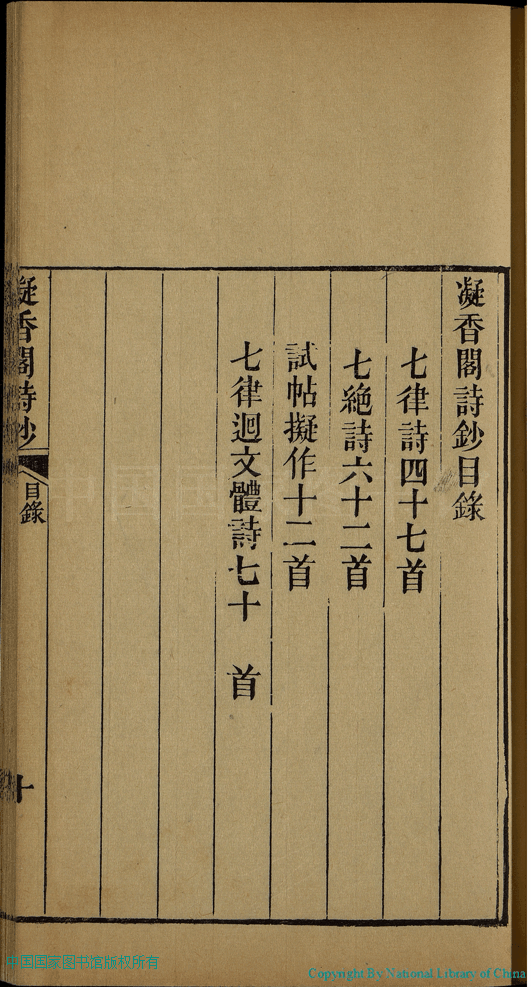 凝香閣詩鈔目錄
七律詩四十七首
七絶詩六十二首
試帖擬作十二首
七律迴文體詩七十 首
凝香閣詩鈔
目錄
十
中国国家图书馆版权所有
Copyright By National Library of China